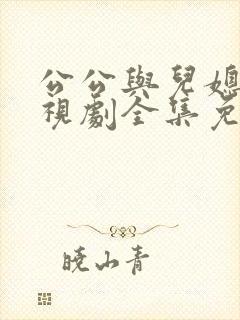 公公與兒媳
視劇全集免
曉山青